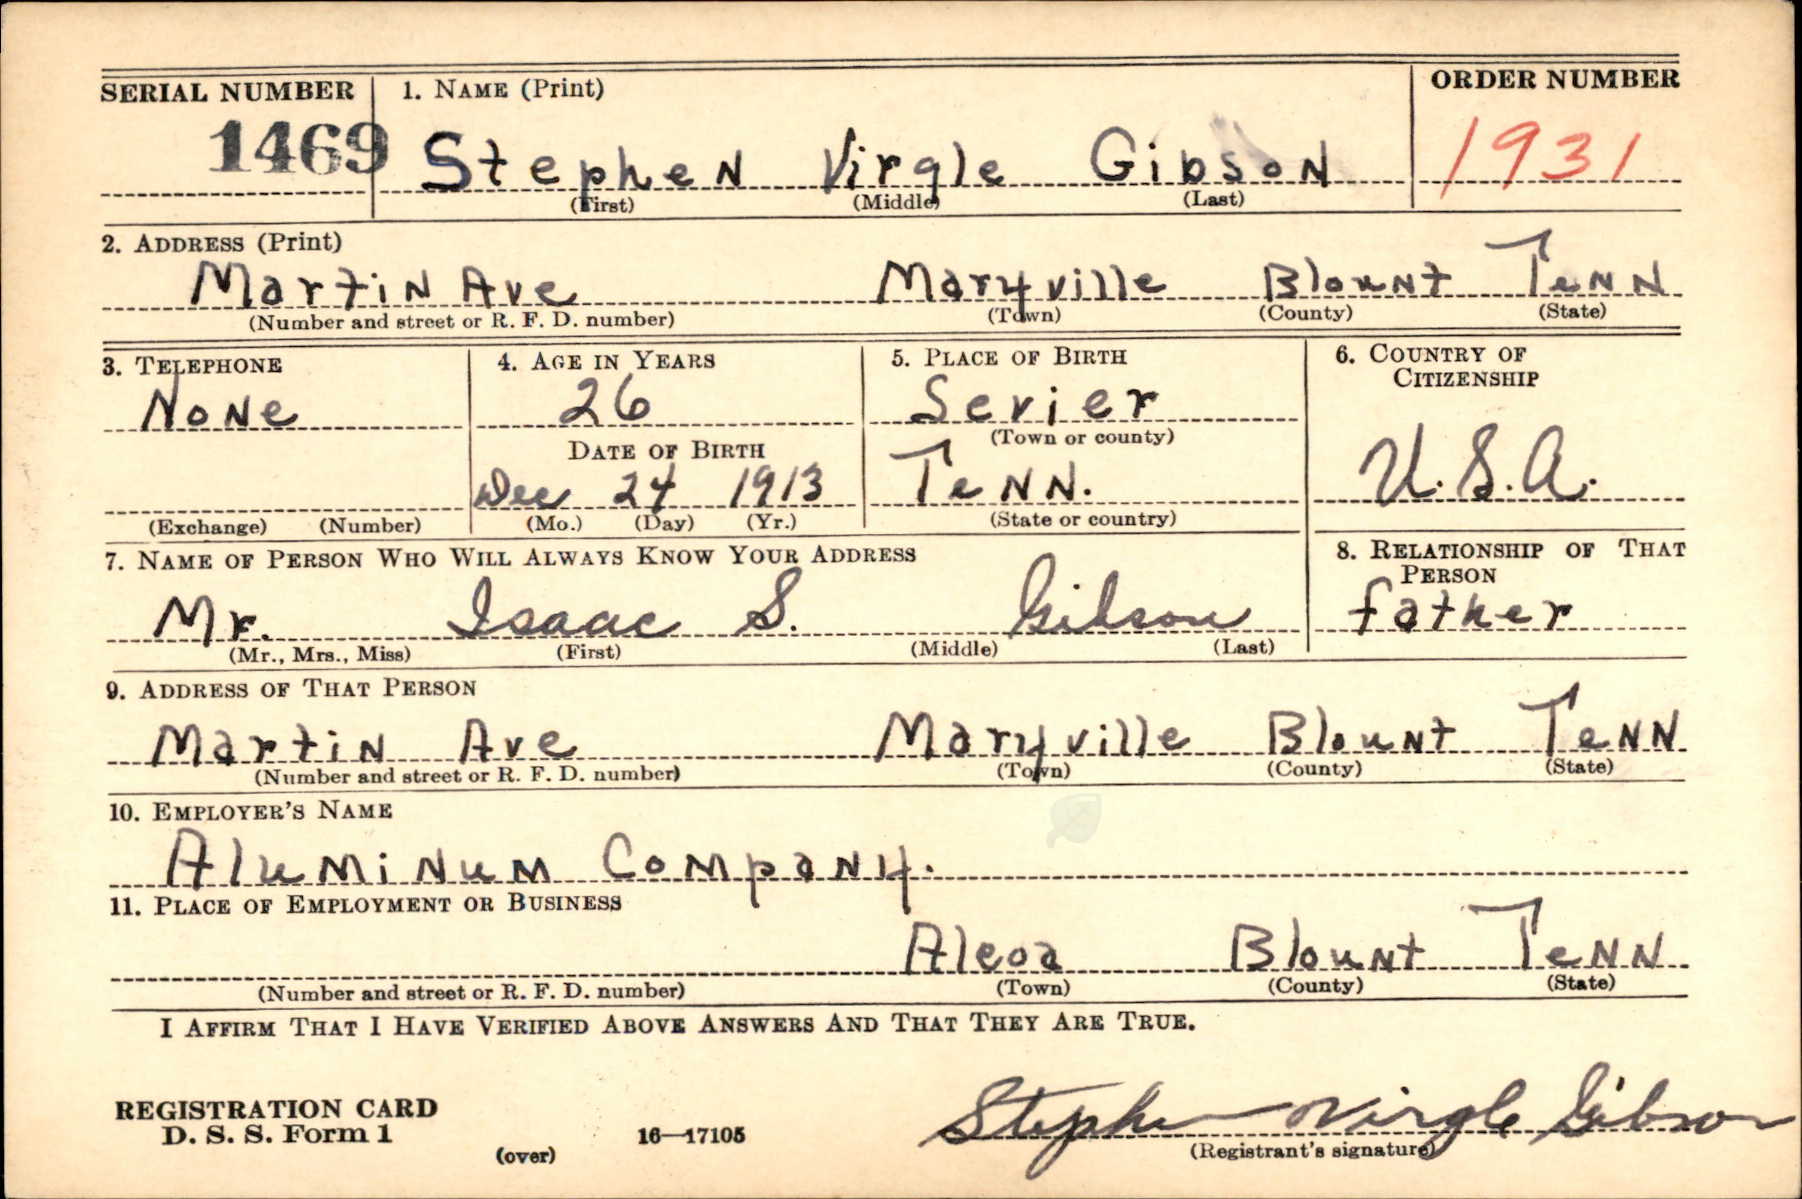 SERIAL NUMBER 1. NAME (Print) ORDER NUMBER
1469 Stephen Virgle Gibson 1931
(First) (Middle) (Last)
2. ADDRESS (Print)
Martin Ave Maryville Blount Tenn
(Number and street or R. F. D. number) (Town) (County) (State)
3. TELEPHONE 4. AGE IN YEARS 5. PLACE OF BIRTH 6. COUNTRY OF
CITIZENSHIP
None 26 Sevier
(Town or county)
DATE OF BIRTH
Dec 24 1913 Tenn. U.S.A.
(Exchange) (Number) (Mo.) (Day) (Yr.) (State or country)
7. NAME OF PERSON WHO WILL ALWAYS KNOW YOUR ADDRESS 8. RELATIONSHIP OF THAT
PERSON
Mr. Isaac S. Gibson father
(Mr., Mrs., Miss) (First) (Middle) (Last)
9. ADDRESS OF THAT PERSON
Martin Ave Maryville Blount Tenn
(Number and street or R. F. D. number) (Town) (County) (State)
10. EMPLOYER'S NAME
Aluminum Company.
11. PLACE OF EMPLOYMENT OR BUSINESS
Alcoa Blount Tenn
(Number and street or R. F. D. number) (Town) (County) (State)
I AFFIRM THAT I HAVE VERIFIED ABOVE ANSWERS AND THAT THEY ARE TRUE.
REGISTRATION CARD
D. S. S. Form 1 16—17105 Stephen Virgle Gibson
(over) (Registrant's signature)